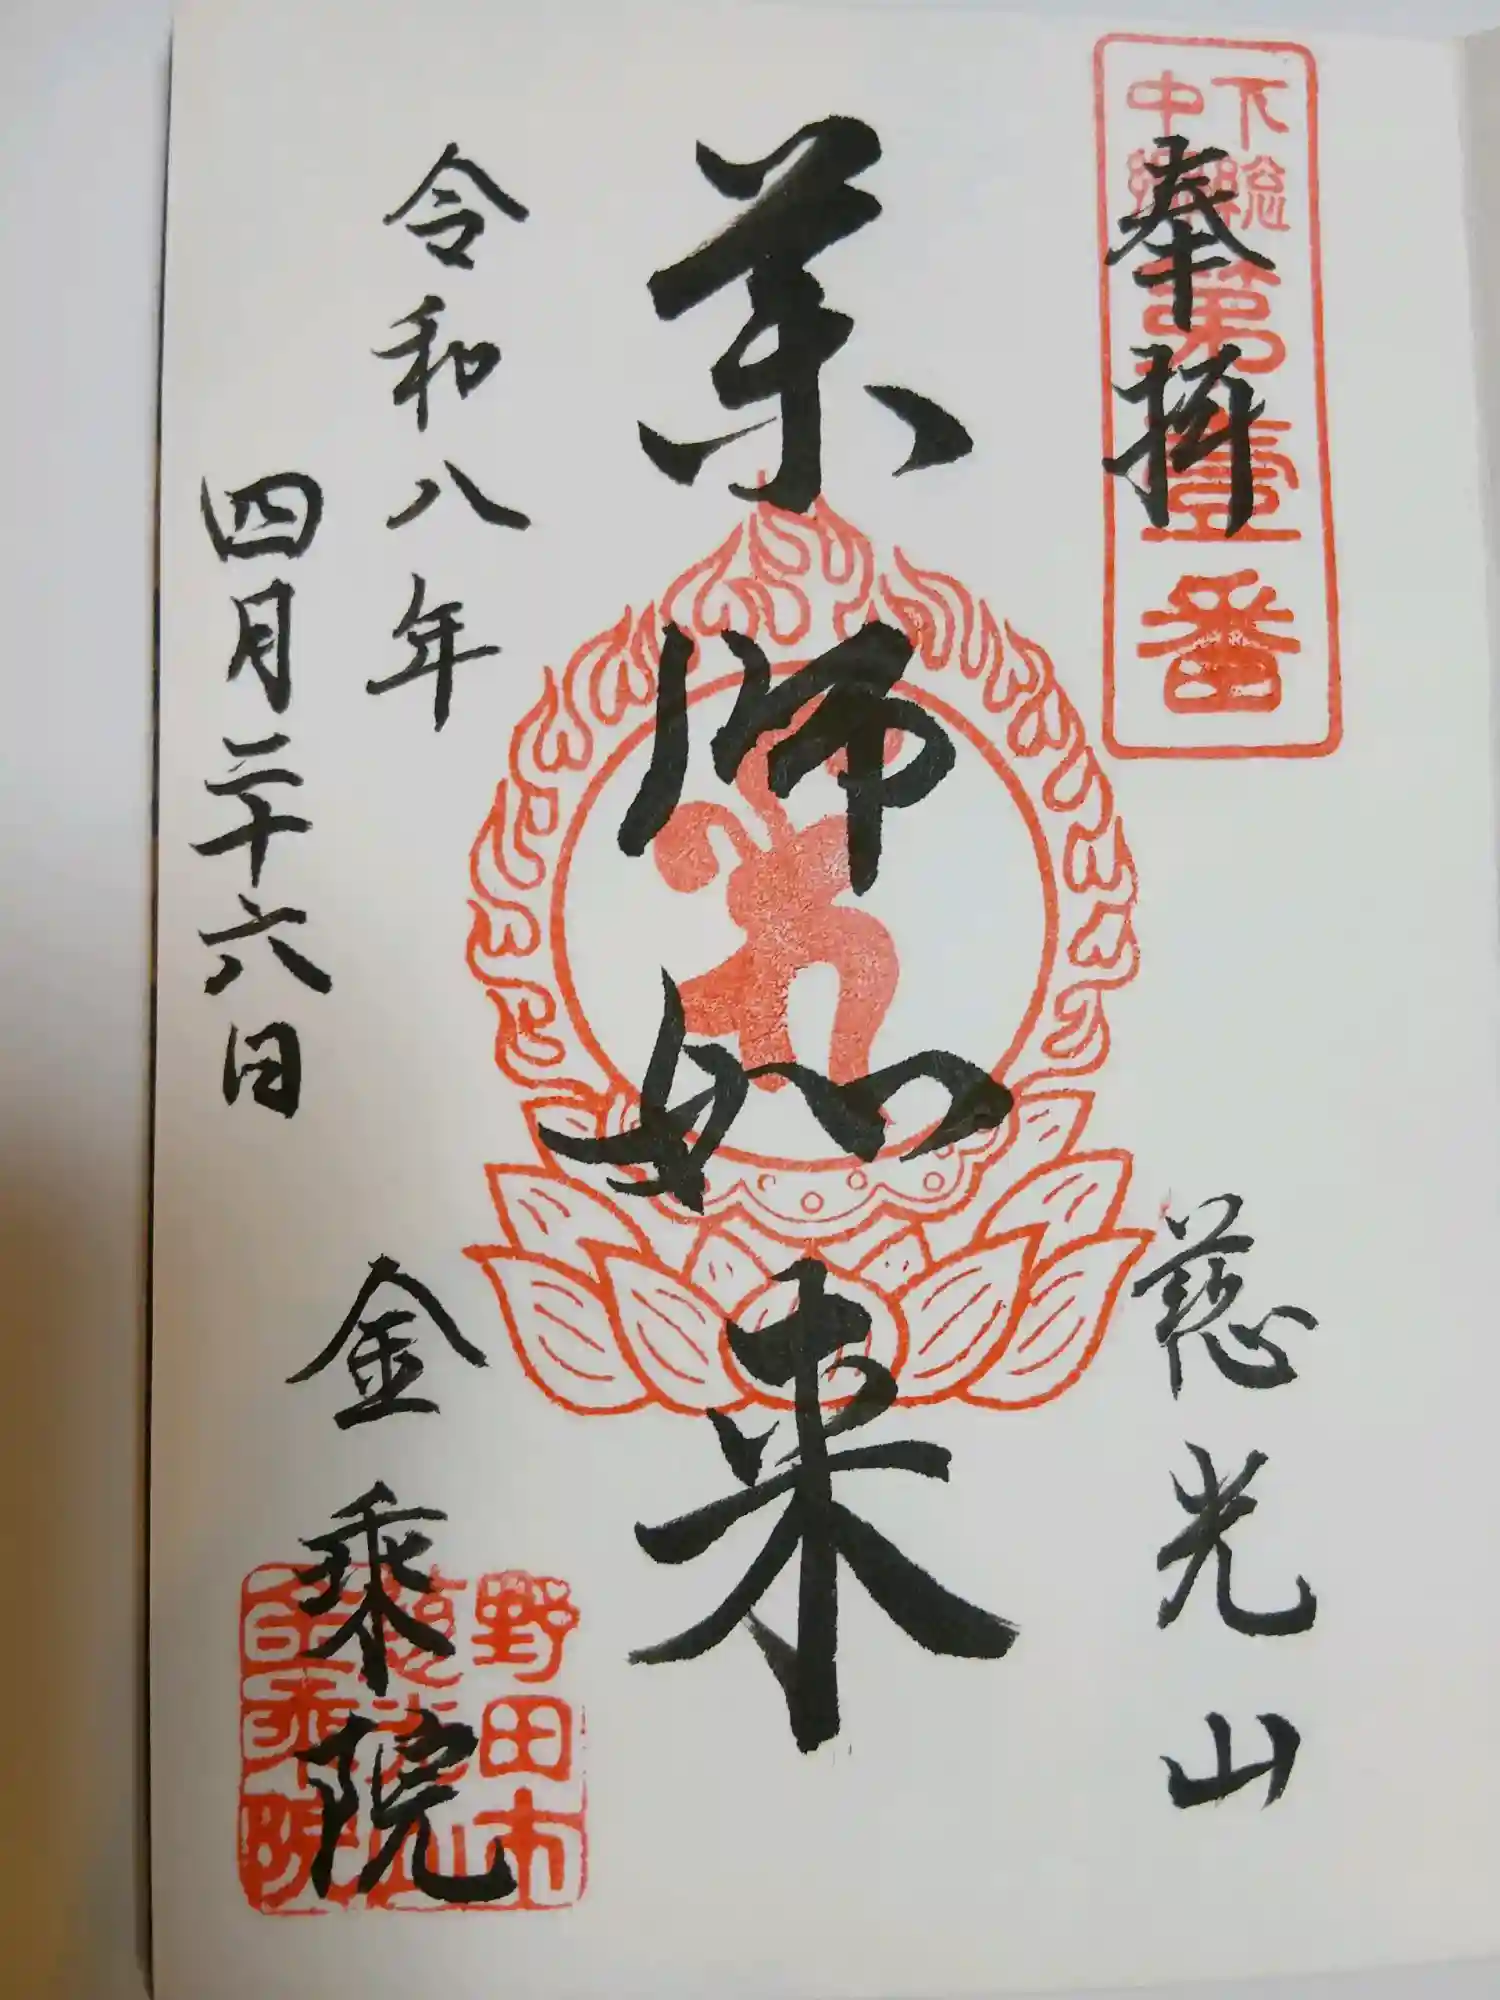 奉拝
下総
中組
第壹番
慈光山
薬師如来
令和八年
四月二十六日
金乗院
野田市
慈光山
金乗院